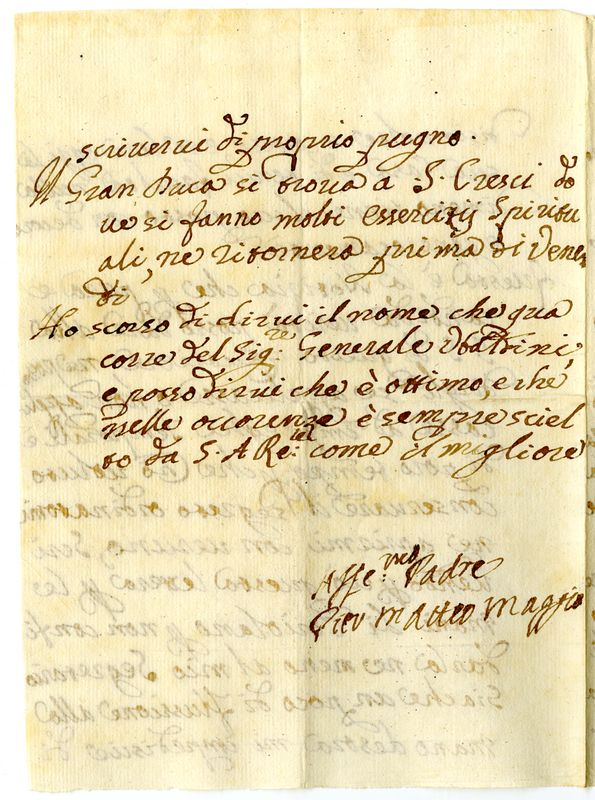 scrivervi di proprio pugno.
Il Gran Duca si trova a S. Cresci do
ve si fanno molti essercitij Spiritu
ali, ne ritornerà prima di Vener
di
Ho scorso di dirvi il nome che qua
corre del Sig:re Generale Ubaldini,
e posso dirvi che è ottimo, e che
nelle occorenze è sempre sciel
to da S. A Re:le come il migliore
Affe:mo Padre
Pier Matteo Maggio